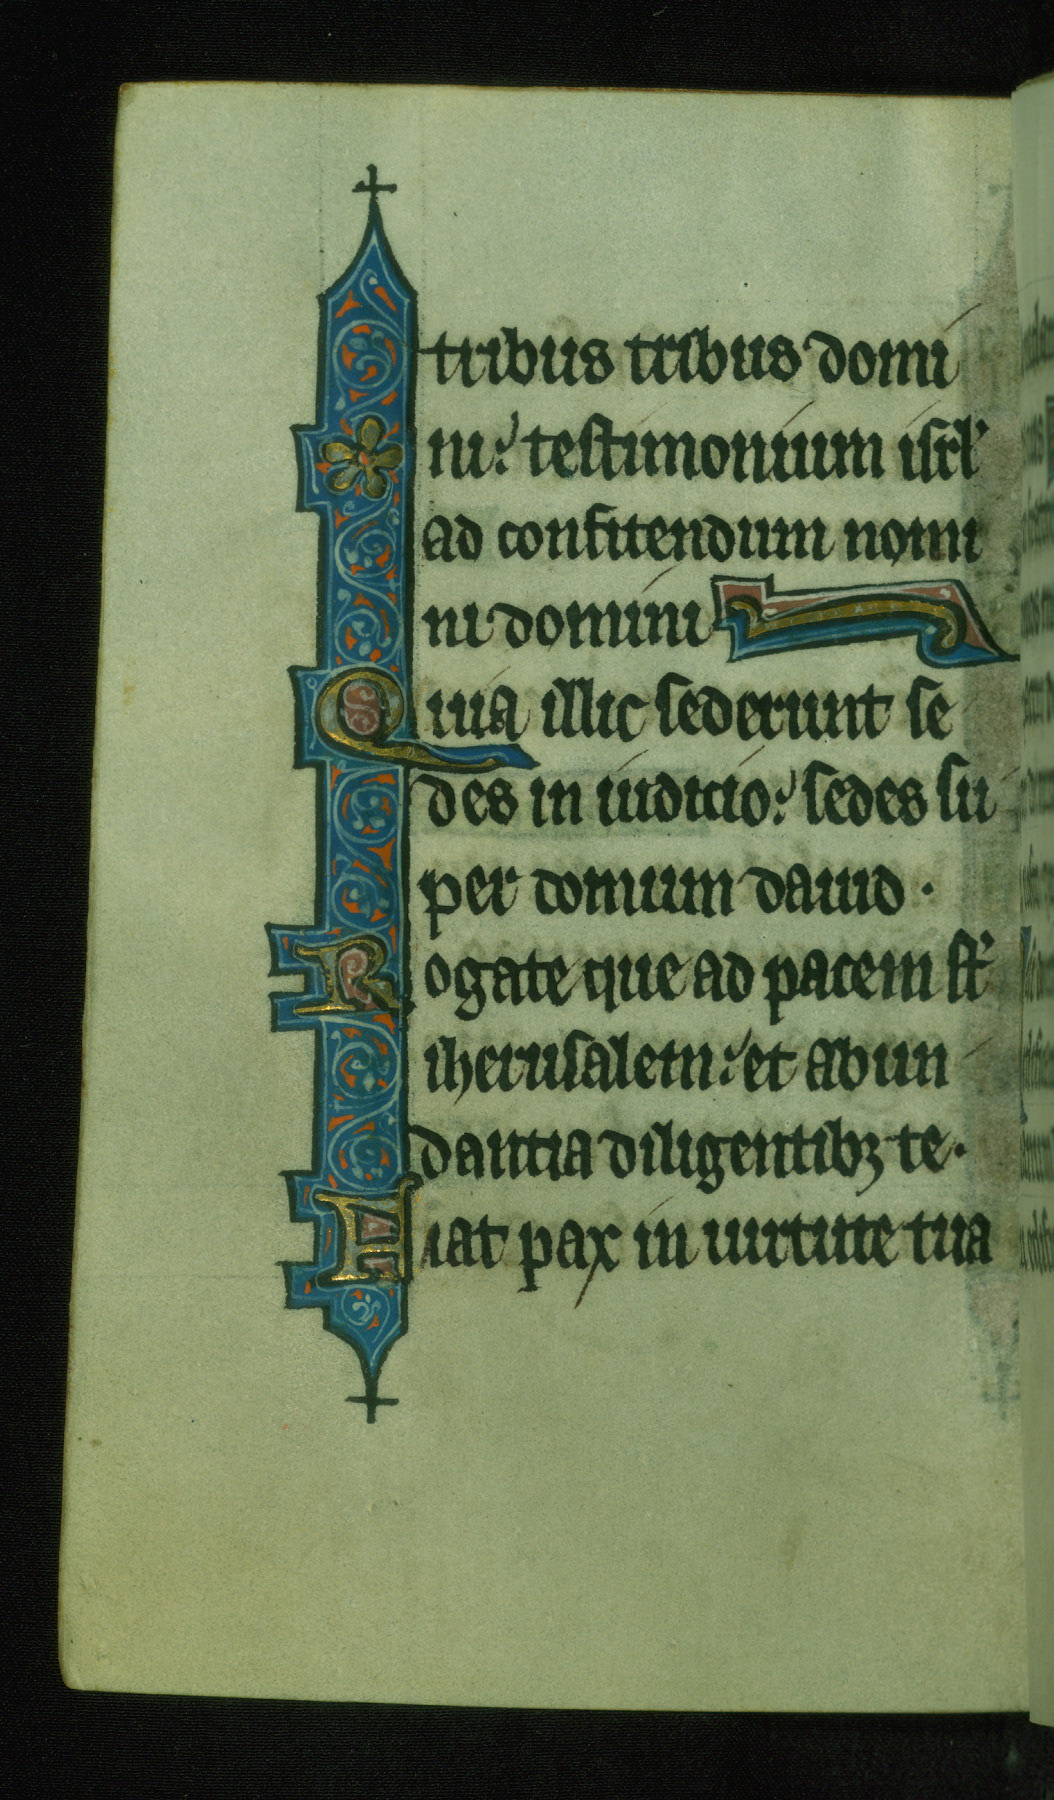 tribus tribus domi
ni: testimonium isrl'
ad confitendum nomi
ni domini
Quia illic sederunt se
des in iudicio: sedes su
per domum dauid.
Rogate que ad pacem st'
iherusalem: et abun
dantia diligentibꝫ te.
Fiat pax in uirtute tua